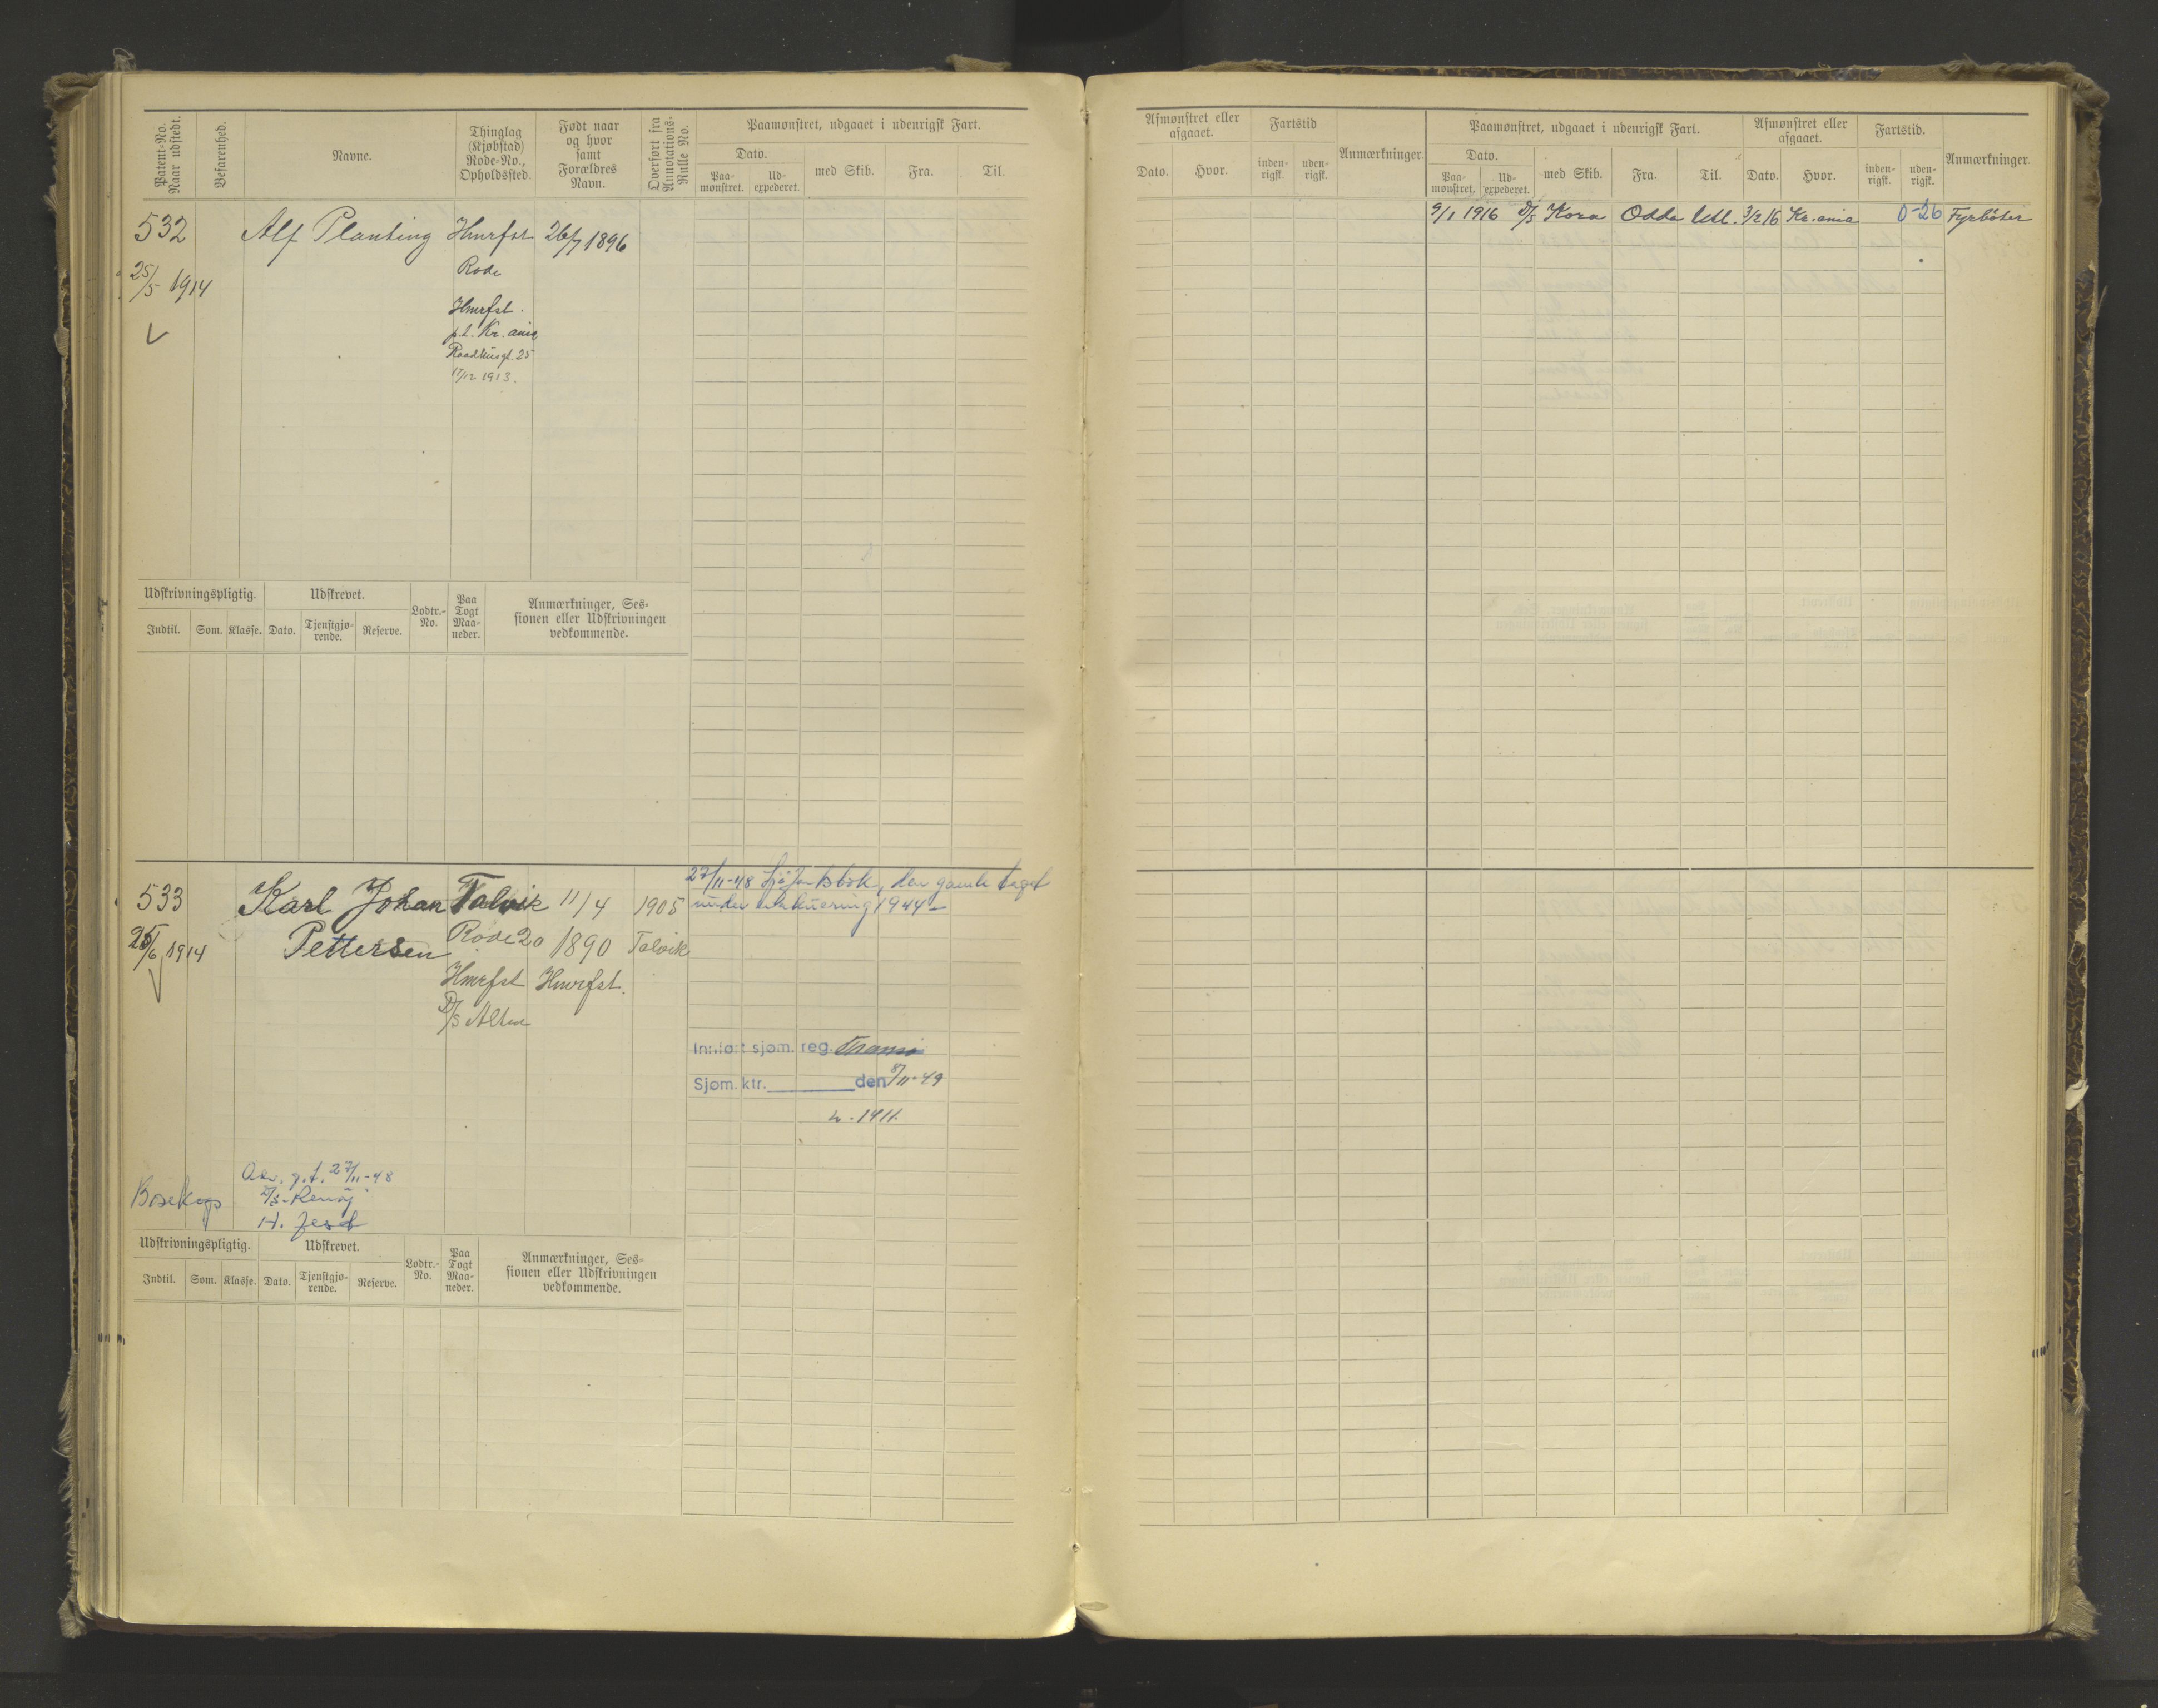 Patent-No. Naar udstedt.
Befarenhed.
Navne.
Thinglag (Kjøbstad) Rode-No., Opholdssted.
Født naar og hvor samt Forældres Navn.
Overført fra Annotations-Rulle No.
Paamønstret, udgaaet i udenrigsk Fart.
Dato.
Paa-mønstret.
Ud-expederet.
med Skib.
Fra.
Til.
532
25/5 1914
Alf Planting
Hmrfst
Rode
Hmrfst.
p.t. Kr.ania
Raadhusgt. 25
17/12 1913.
26/7 1896
Udskrivningspligtig.
Udskrevet.
Lodtr.-No.
Paa Togt Maa-neder.
Anmærkninger, Ses-
sionen eller Udskrivningen
vedkommende.
Indtil.
Som.
Klasse.
Dato.
Tjenstgjø-rende.
Reserve.
533
25/6 1914
Karl Johan
Pettersen
Talvik
Rode 20
Hmrfst
D/S Alten
11/4
1890
Hmrfst.
1905
Talvik
27/11-48 Sjøfartsbok, den gamle taget
under evakuering 1944-
Innført sjøm. reg. Tromsø
Sjøm. ktr. den 8/11-49
1411.
Bosekop
27/11-48
Udskrivningspligtig.
Udskrevet.
Lodtr.-No.
Paa Togt Maa-neder.
Anmærkninger, Ses-
sionen eller Udskrivningen
vedkommende.
Indtil.
Som.
Klasse.
Dato.
Tjenstgjø-rende.
Reserve.
Afmønstret eller afgaaet.
Dato.
Hvor.
Fartstid
inden-rigsk.
uden-rigsk.
Anmærkninger.
Paamønstret, udgaaet i udenrigsk Fart.
Dato.
Paa-mønstret.
Ud-expederet.
med Skib.
Fra.
Til.
Afmønstret eller afgaaet.
Dato.
Hvor.
Fartstid.
inden-rigsk.
uden-rigsk.
Anmærkninger.
9/1 1916 D/S Kora Odda Utl. 3/2 16 Kr.ania 0-26 Fyrbøter